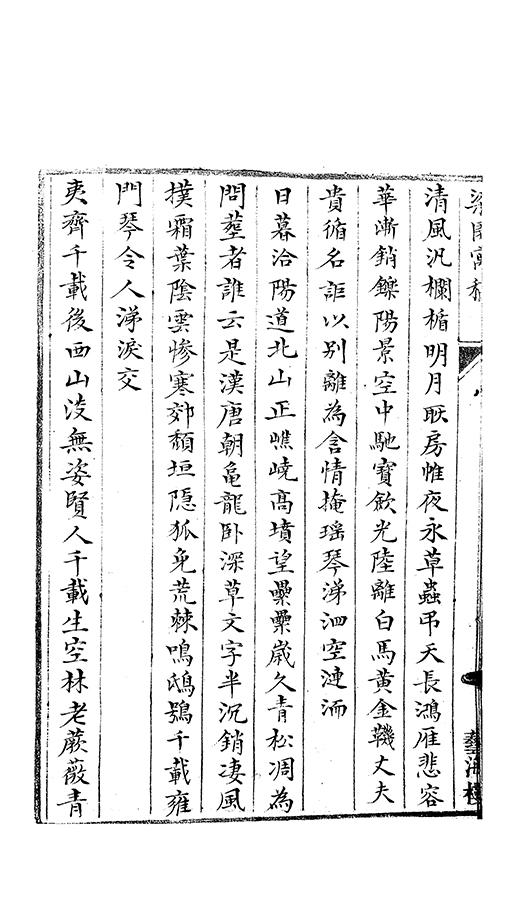 梁園寓稿
八
藝海樓
清風汎欄楯明月照房帷夜永草蟲弔天長鴻雁悲容
華漸銷鑠陽景空中馳寶飲光陸離白馬黃金鞿丈夫
貴循名詎以別離為含情掩瑶琴涕泗空漣洏
日暮洛陽道北山正嶕嶢高墳望纍纍歲久青松凋為
問塟者誰云是漢唐朝黽龍卧深草文字半沉銷淒風
撲霜葉陰雲慘寒郊頹垣隱狐兔荒棘鳴鴟鴞千載雍
門琴令人涕淚交
夷齊千載後西山淡無姿賢人千載生空林老蕨薇青